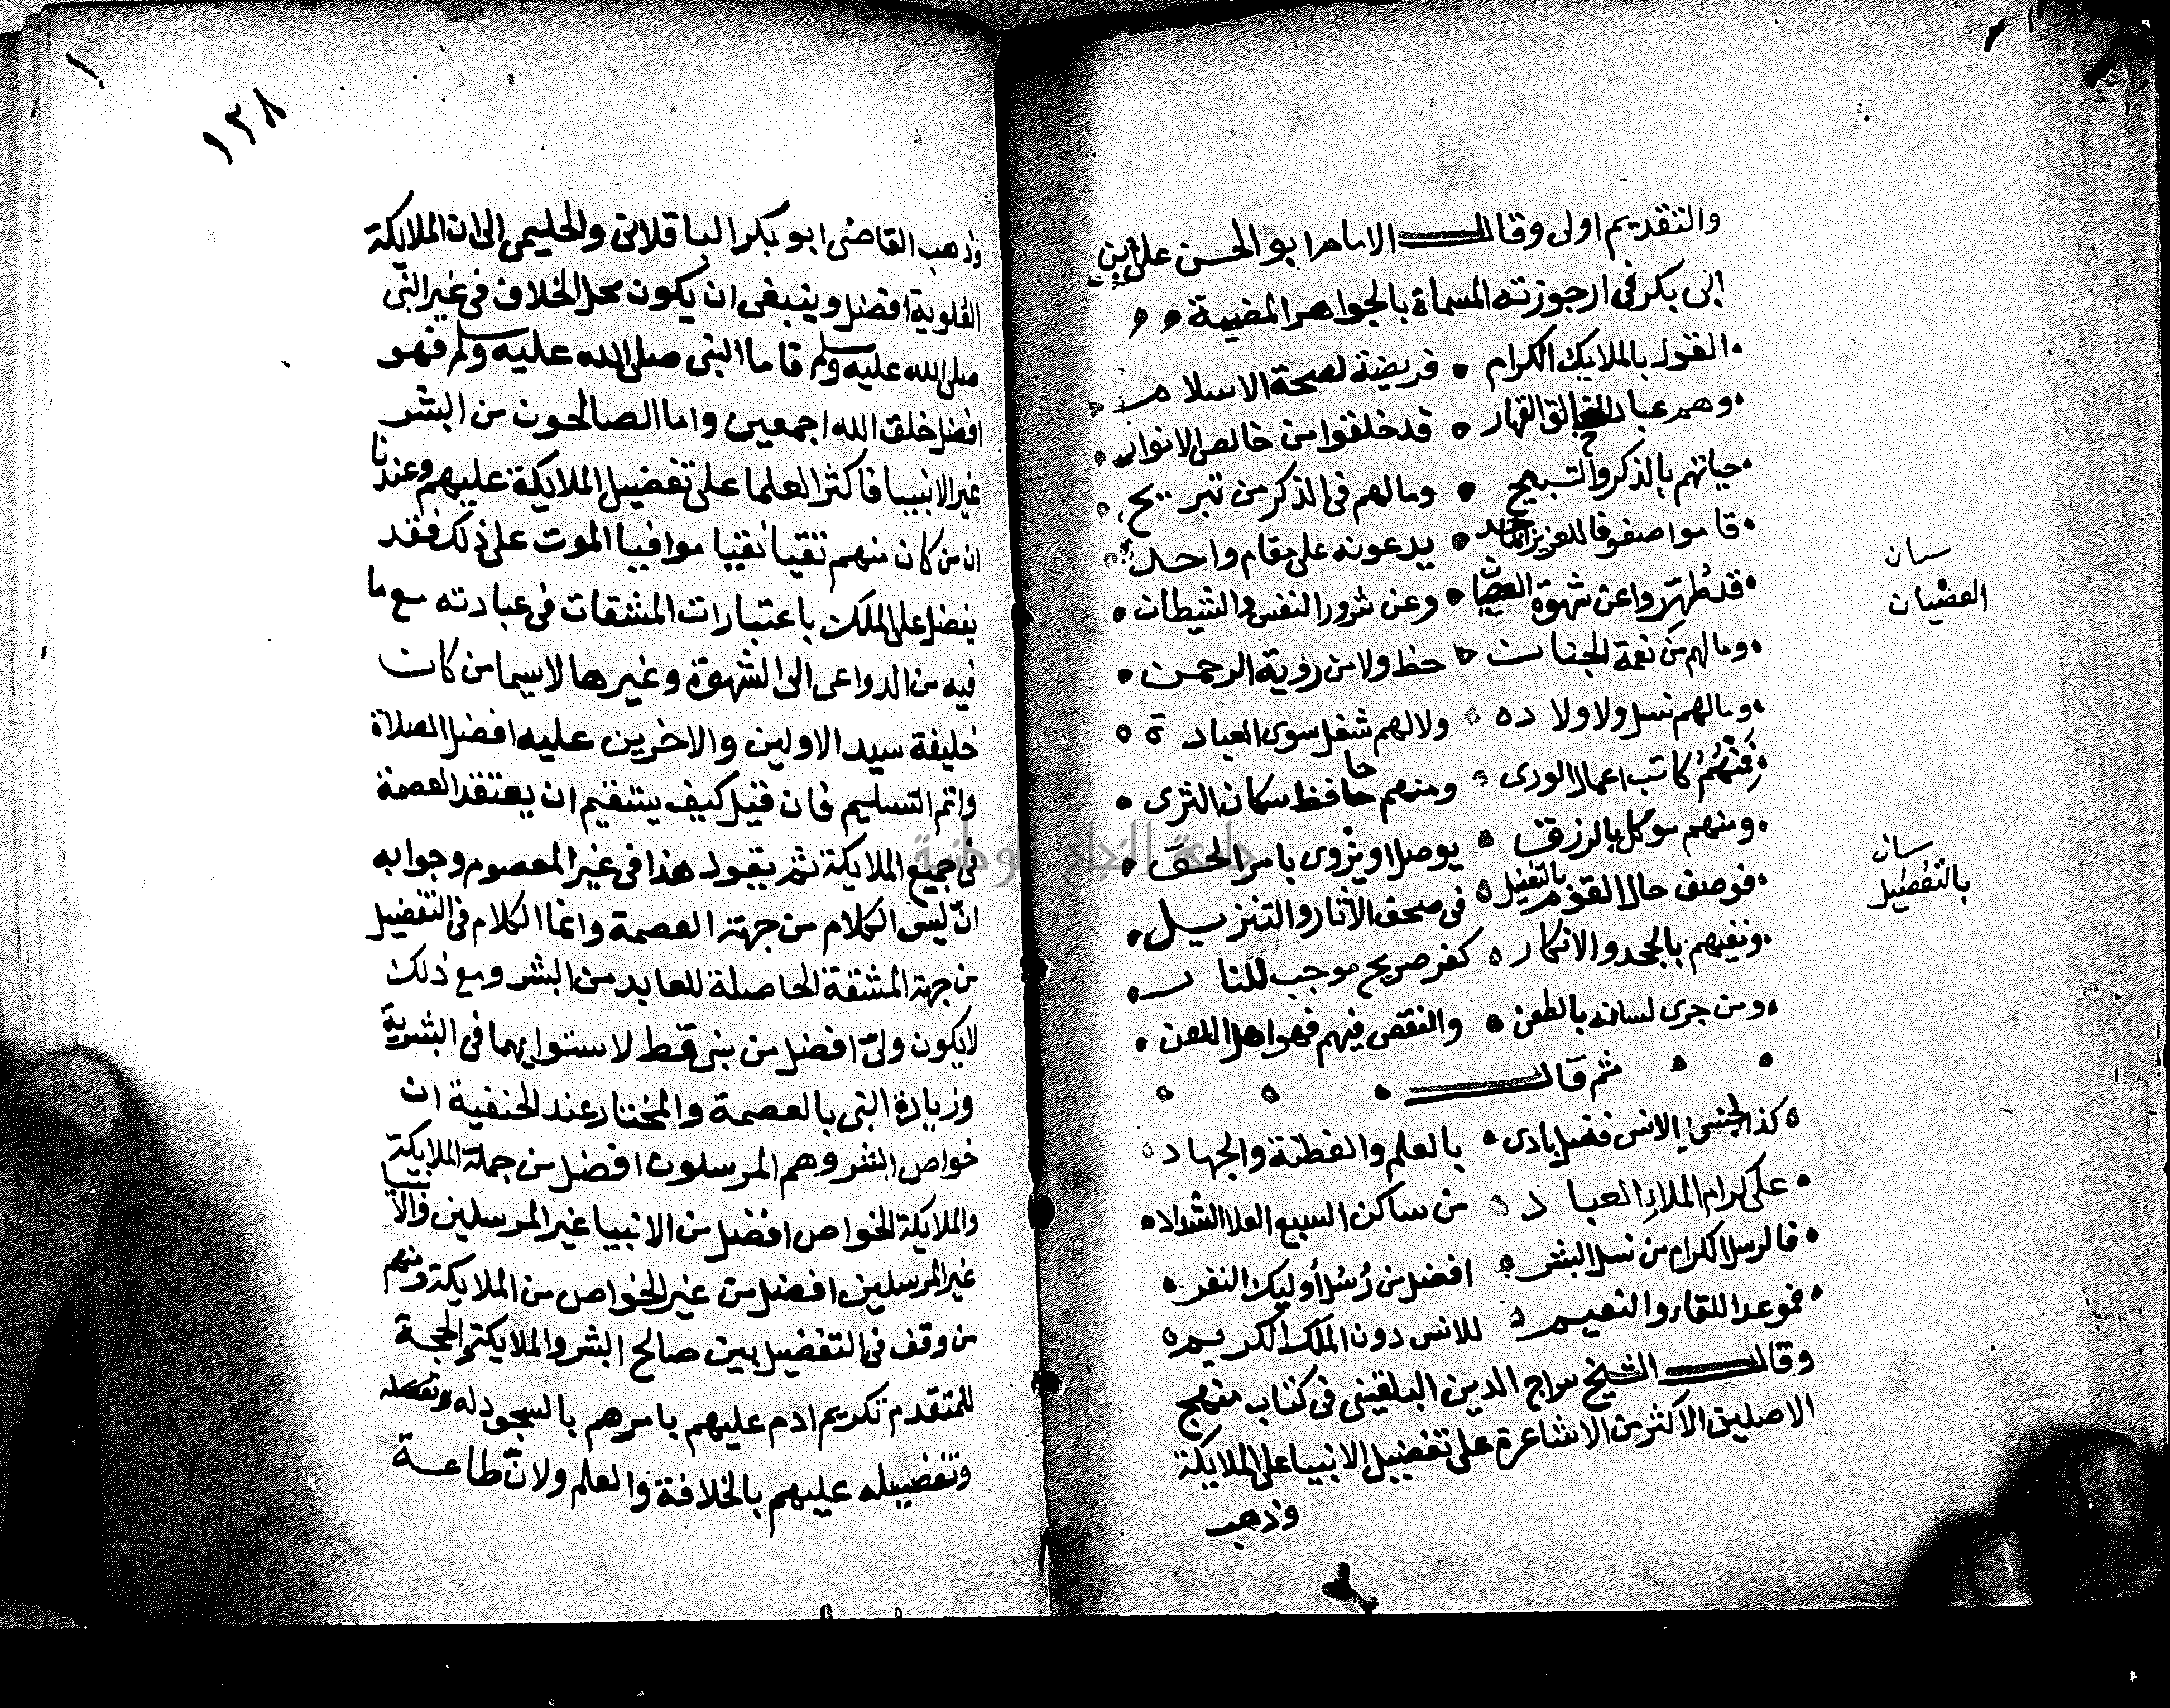 والتقديم اولى وقال الامام ابو الحسن على ابن
ابن بكر فى ارجوزته المسماة بالجواهر المضيية
القول بالملايك الكرام • فريضة لصحة الاسلام
وهم عباد الخالق القهار • قد خلقوا من خالص الانوار
حياتهم بالذكر والتسبيح • ومالهم فى الذكر من تبريح
قاموا صفوفا للعزيز • يدعونه على مقام واحد
قد طهروا عن شهوة العصيان • وعن شرور النفس والشيطان
ومالهم من نعمة الجنات • حظ ولا من رؤية الرحمن
ومالهم نسل ولا ولاده • ولا لهم شغل سوى العبادة
فمنهم كاتب اعمال الورى • ومنهم حافظ سكان الثرى
ومنهم موكل بالرزق • يوصل او يزوى بامر الحق
فوصف حال القوم بالتفضيل • فى صحف الآثار والتنزيل
ونفيهم بالجحد والانكار • كفر صريح موجب للنار
ومن جرى لسانه بالطعن • والنقص فيهم فهو اهل اللعن
ثم قال
كذا لجنس الانس فضل بادى • بالعلم والفطنة والجهاد
على كرام الملاء العباد • من ساكن السبع العلا الشداد
فالرسل الكرام من نسل البشر • افضل من رسل أوليك النفر
فموعد اللقاء والنعيم • للانس دون الملك الكريم
وقال الشيخ سراج الدين البلقينى فى كتاب منهج
الاصلين الاكثر من الاشاعرة على تفضيل الانبيا على الملايكة
وذهب
بيان
العصيان
بيان
بالتفضيل
١٣٨
وذهب القاضى ابو بكر الباقلانى والحليمى الى ان الملايكة
العلوية افضل وينبغى ان يكون محل الخلاف فى غير النبى
صلى الله عليه وسلم فاما النبى صلى الله عليه وسلم فهو
افضل خلق الله اجمعين واما الصالحون من البشر
غير الانبيا فاكثر العلما على تفضيل الملايكة عليهم وعندنا
ان من كان منهم تقيا نقيا موافيا الموت على ذلك فقد
يفضل على الملك باعتبارات المشقات فى عبادته مع ما
فيه من الدواعى الى الشهوة وغيرها لاسيما من كان
خليفة سيد الاولين والاخرين عليه افضل الصلاة
واتم التسليم فان قيل كيف يستقيم ان يعتقد العصمة
فى جميع الملايكة ثم يقول هذا فى غير المعصوم وجوابه
انّ ليس الكلام من جهة العصمة وانما الكلام فى التفضيل
من جهة المشقة الحاصلة للعابد من البشر ومع ذلك
لايكون ولىّ افضل من نبى قط لاستوايهما فى البشرية
وزيادة النبى بالعصمة والمختار عند الحنفية ان
خواص البشر وهم المرسلون افضل من جملة الملايكة
والملايكة الخواص افضل من الانبيا غير المرسلين والانبيا
غير المرسلين افضل من غير الخواص من الملايكة ومنهم
من وقف فى التفضيل بين صالح البشر والملايكة والحجة
للمتقدم تكريم ادم عليهم بامرهم بالسجود له
وتفضيله عليهم بالخلافة والعلم ولانّ طاعة